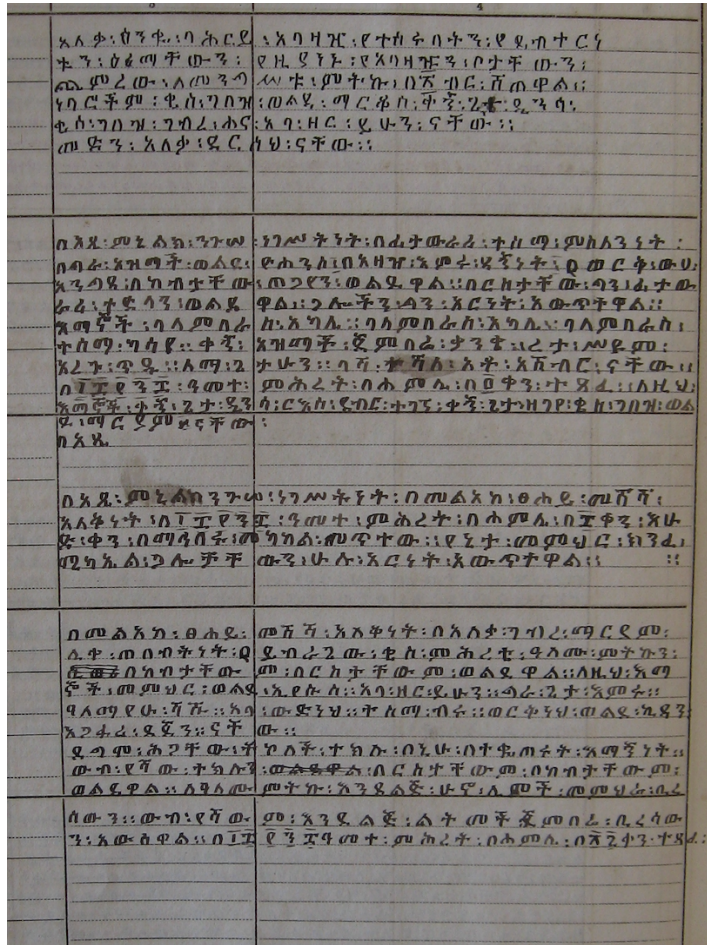 አለቃ፡ዕንቁ፡ባሕርይ፡አባዛዢ፡የተከሩባትን፡የ
ቱን፡ዕፊማቸውን፡የዚያኑኑ፡የአባዛዡን፡ቦታቸውን፡
ጨምረው፡ለመንጣ፡ምትኩ፡በ፷ብር፡ሸጠዋል፡፡
ነባሮችም፡ቄስ፡ገበዝ፡ወልደ፡ማርቆስ፡ቀኝ፡ጌታ፡ዲንሳ፡
ቄሰ፡ገበዝ፡ገብረ፡ሐና፡አባ፡ዘር፡ይሁን፡ናቸው፡፡
መድን፡አለቃ፡ደርሰህ፡ናቸው፡፡
በአጼ፡ምኒልክ፡ንጉሠ፡ነገሥትነት፡በፊታውራሪ፡ተሰማ፡ምስለንነት፡
በጣራ፡አዝማች፡ወልደ፡ዮሐንስ፡በአዛዥ፡እምሩ፡ዳኝነት፡ወርቅ፡ውሀ፡
እንጓዴ፡በከብታቸው፡ጠጋየን፡ወልደዋል፡፡በርስታቸው፡ጣን፡ፊታው
ራሪ፡ተድላን፡ወልደዋል፡፡ጋሎችን፡ጣን፡አርንት፡አውጥትዋል፡፡
እማኞች፡ባላምበራስ፡አካሌ፡፡ባላምበራስ፡አካሌ፡፡ባላምበራስ፡
ተሰማ፡ካሳየ፡፡ቀኝ፡አዝማች፡ጀምበሬ፡
አረጉ፡ጥዱ፡፡ለማ፡ጌታሁን፡፡ባሻ፡ተሻለ፡አቶ፡አሸብር፡ናቸው፡፡
በ፲፱፻፺፯፡ዓመተ፡ምሕረት፡በሐምሌ፡በ፬ቀን፡ተጻፈ፡፡ለዚህ፡
እማኞች፡ቀኝ፡ጌታ፡ዲንሳ፡ርእሰ፡ደብር፡ተገኝ፡ቀኝ፡ጌታ፡ዘገየ፡ቄሰ፡ገበዝ፡ወል
ደ፡ማርያምናቸው፡
በአጼ
በአጼ፡ምኒልክ፡ንጉሠ፡ነገሥትነት፡በመልአከ፡ፀሐይ፡መሸሻ፡
አለቅነት፡ዓመተ፡ምሕረት፡በሐምሌ፡ቀን፡እሁ
ድ፡ቀን፡በማኅበሩ፡መካከል፡መጥተው፡፡የኔታ፡መምህር፡ክንፈ፡
ሚካኤል፡ጋሎቻቸውን፡ሁሉ፡አርነት፡አውጥትዋል፡፡
በመልአከ፡ፀሐይ፡መሸሻ፡አለቅነት፡በአለቃ፡ገብረ፡ማርያም፡
ሊቀ፡ጠበብትነት፡ይብራጌው፡ቄስ፡ምሕረቴ፡ዓለሙ፡ምትኩን፡
በከብታቸውም፡በርስታቸውም፡ወልደዋል፡፡ለዚህ፡እማ
ኞች፡መምህር፡ወልደ፡ኢየሱስ፡፡አባ፡ዘር፡ይሁን፡፡ጣራ፡ጌታ፡እምሩ፡፡
ዓለማየሁ፡ሻሹ፡፡አባ፡ውድነህ፡፡ተሰማ፡ብሩ፡፡ወርቅነህ፡ወልደ፡ኪዳን፡
አጋፋሪ፡ደጀን፡፡ናቸው፡፡
ደግሞ፡ሕጋቸው፡ትኮለች፡ተክሉ፡በኒሁ፡በተቈጠሩት፡እማኝነት፡፡
ውብ፡የሻው፡ተክሉን፡በርስታቸውም፡በከብታቸውም፡
ወልደዋል፡፡ለዓለሙ፡ምትኩ፡እንደልጅ፡ሁኖ፡ሊሞች፡መምህራ፡ቢረ
ሳውን፡፡ውብ፡የሻውም፡እንደ፡ልጅ፡ልትመች፡ጀምበሬ፡ቢረሳው
ን፡አውስዋል፡፡ዓመተ፡ምሕረት፡በሐምሌ፡ቀን፡ተጻፈ፡